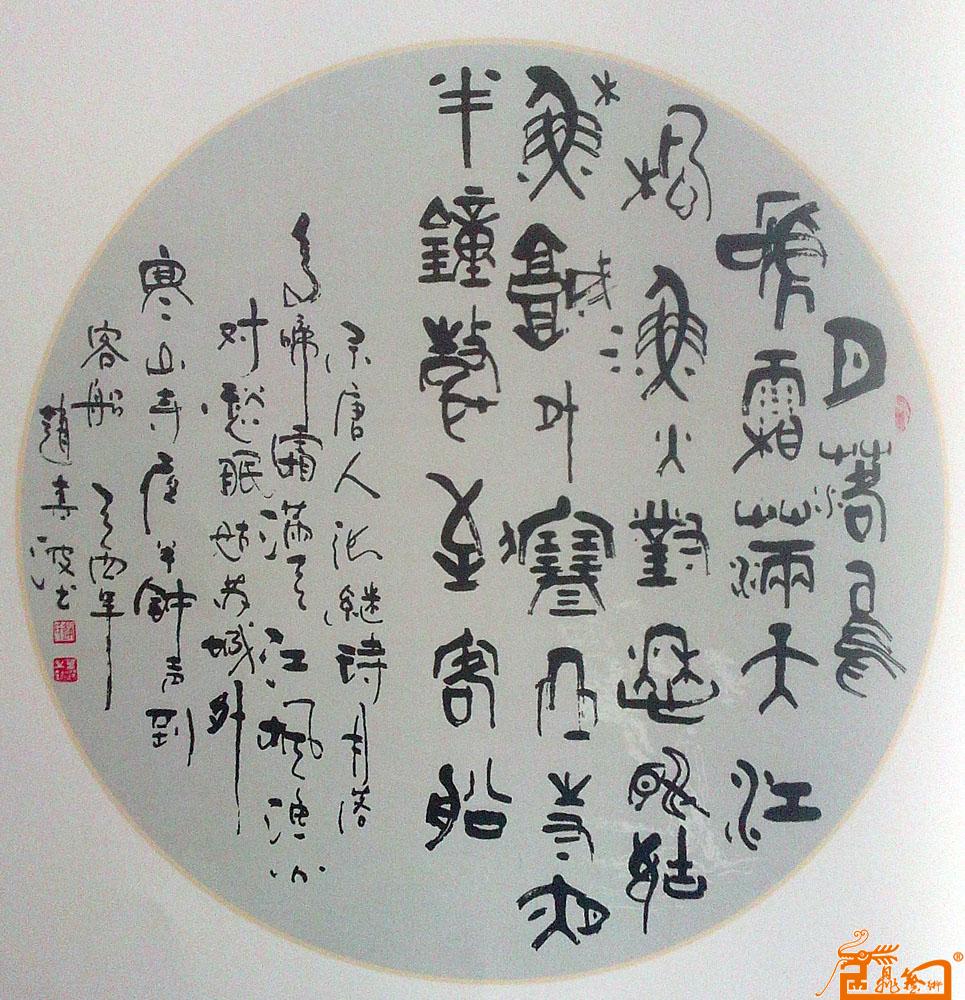 月落烏
啼霜滿天江
楓漁火對愁眠姑
蘇城外寒山寺夜
半鐘聲至客船
录唐人张継詩月落
烏啼霜滿天江枫渔火
对愁眠姑苏城外
寒山寺夜半鈡声到
客船 乙酉年
趙 波书